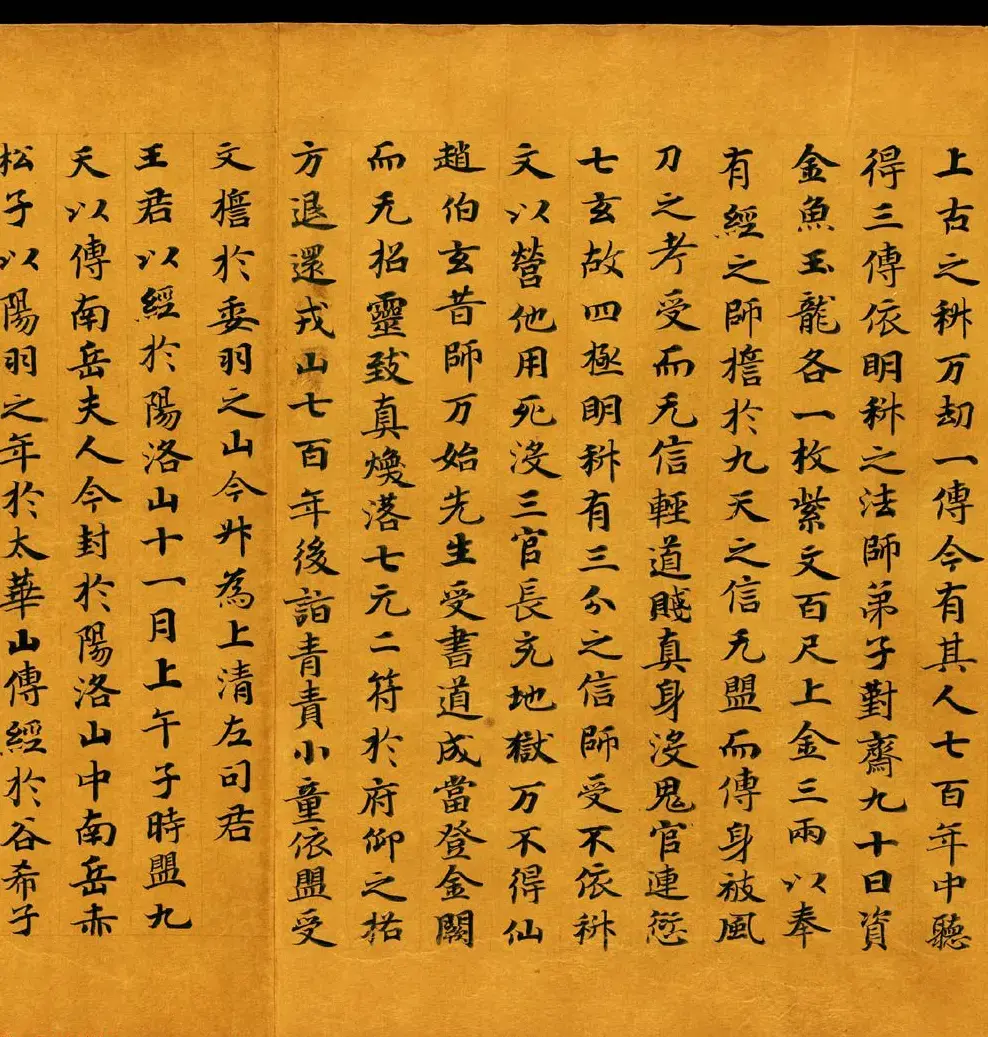 上古之科万劫一傳今有其人七百年中聽
得三傳依明科之法師弟子對齋九十日資
金魚玉龍各一枚紫文百尺上金三兩以奉
有經之師擔於九天之信无盟而傳身被風
刀之考受而无信輕道賤真身沒鬼官連愆
七玄故四極明科有三分之信師受不依科
文以營他用死沒三官長充地獄万不得仙
趙伯玄昔師万始先生受書道成當登金闕
而无招靈致真燌落七元二符於府仰之招
方退還戎山七百年後詣青責小童依盟受
文擔於委羽之山今㫒為上清左司君
王君以經於陽洛山十一月上午子時盟九
天以傳南岳夫人今封於陽洛山中南岳赤
松子以陽羽之年於太華山傳經於谷希子